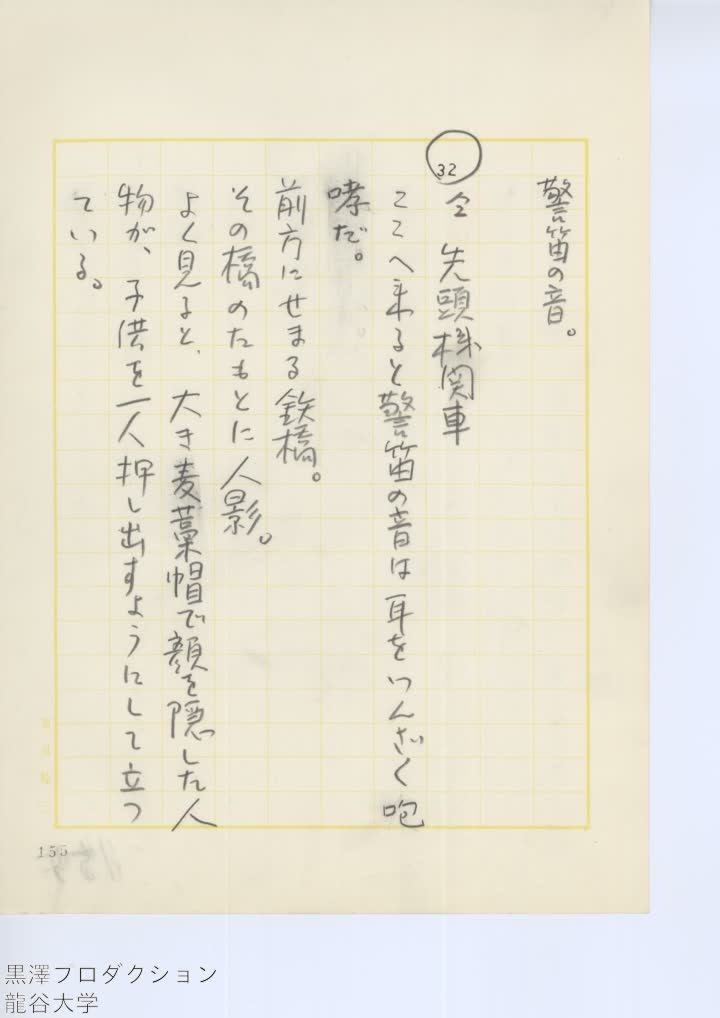 警笛の音。
32
仝　先頭機関車
ここへ来ると警笛の音は耳をつんざく咆
哮だ。
前方にせまる鉄橋。
その橋のたもとに人影。
よく見ると、大き麦藁帽で顔を隠した人
物が、子供を一人押し出すようにして立つ
ている。
155
黒澤プロダクション
龍谷大学